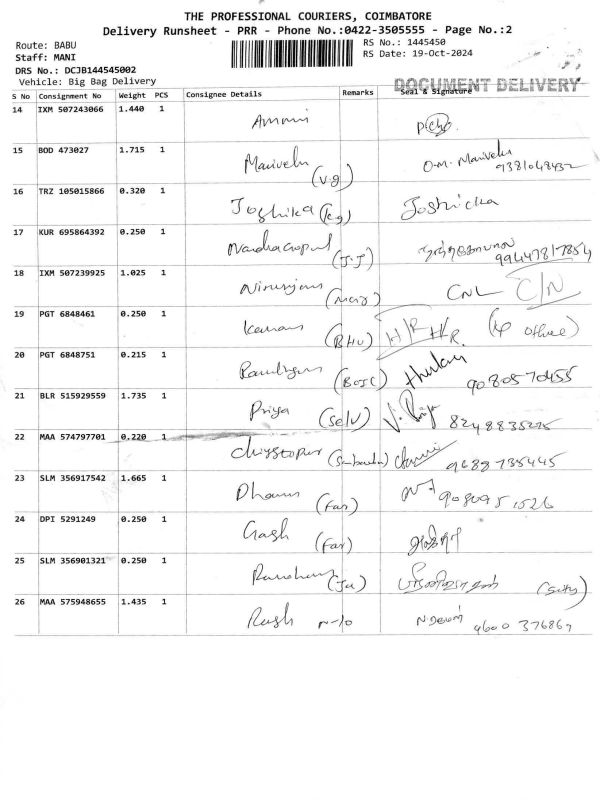 THE PROFESSIONAL COURIERS, COIMBATORE
Delivery Runsheet - PRR - Phone No.:0422-3505555 - Page No.:2
Route: BABU
RS No.: 1445450
Staff: MANI
RS Date: 19-Oct-2024
DRS No.: DCJB144545002
Vehicle: Big Bag Delivery
DOCUMENT DELIVERY
S No Consignment No Weight PCS Consignee Details Remarks Seal & Signature
14 IXM 507243066 1.440 1 Ammni
15 BOD 473027 1.715 1 Marivelu (V.g) O.M. Marivelu
9381048432
16 TRZ 105015866 0.320 1 Joshika (kg) Joshicka
17 KUR 695864392 0.250 1 Nandhagopal (J.J)
99447817854
18 IXM 507239925 1.025 1 CNL C/N
19 PGT 6848461 0.250 1 (BHU) H/R HR. (KP office)
20 PGT 6848751 0.215 1 (BOSC) 9080570455
21 BLR 515929559 1.735 1 Priya (Selv) V. Priya 8248835225
22 MAA 574797701 0.220 1 Chrystopur 9689735445
23 SLM 356917542 1.665 1 Dhanus (Far) 9080951526
24 DPI 5291249 0.250 1 (Far)
25 SLM 356901321 0.250 1 (Ju)
26 MAA 575948655 1.435 1 N-10 9600 376869